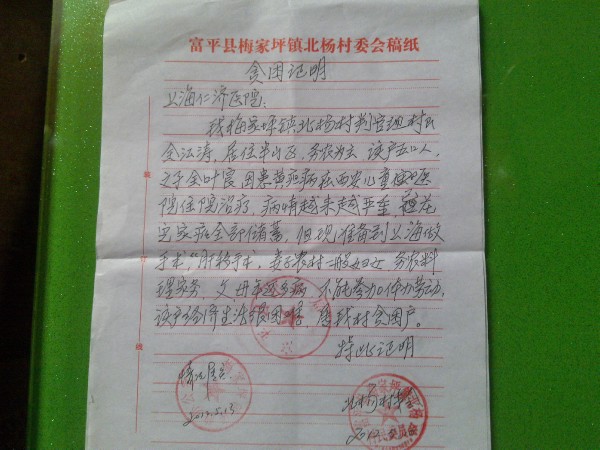 富平县梅家坪镇北杨村委会稿纸
贫困证明
上海仁济医院:
我梅家坪镇北杨村判官组村民
金江涛,居住半山区,务农为主 该户五口人,
之子金叶宸因患黄疸病在西安儿童医院
院住院治疗,病情越来越严重,花
完家庭全部储蓄,但现准备到上海做
手术,"肝移手术,妻子农村一般妇女 务农料
理家务,父母年迈多病 不能参加体力劳动,
该户经济生活很困难,属我村贫困户。
特此证明
情况属实
2013.5.13
北杨村村委会